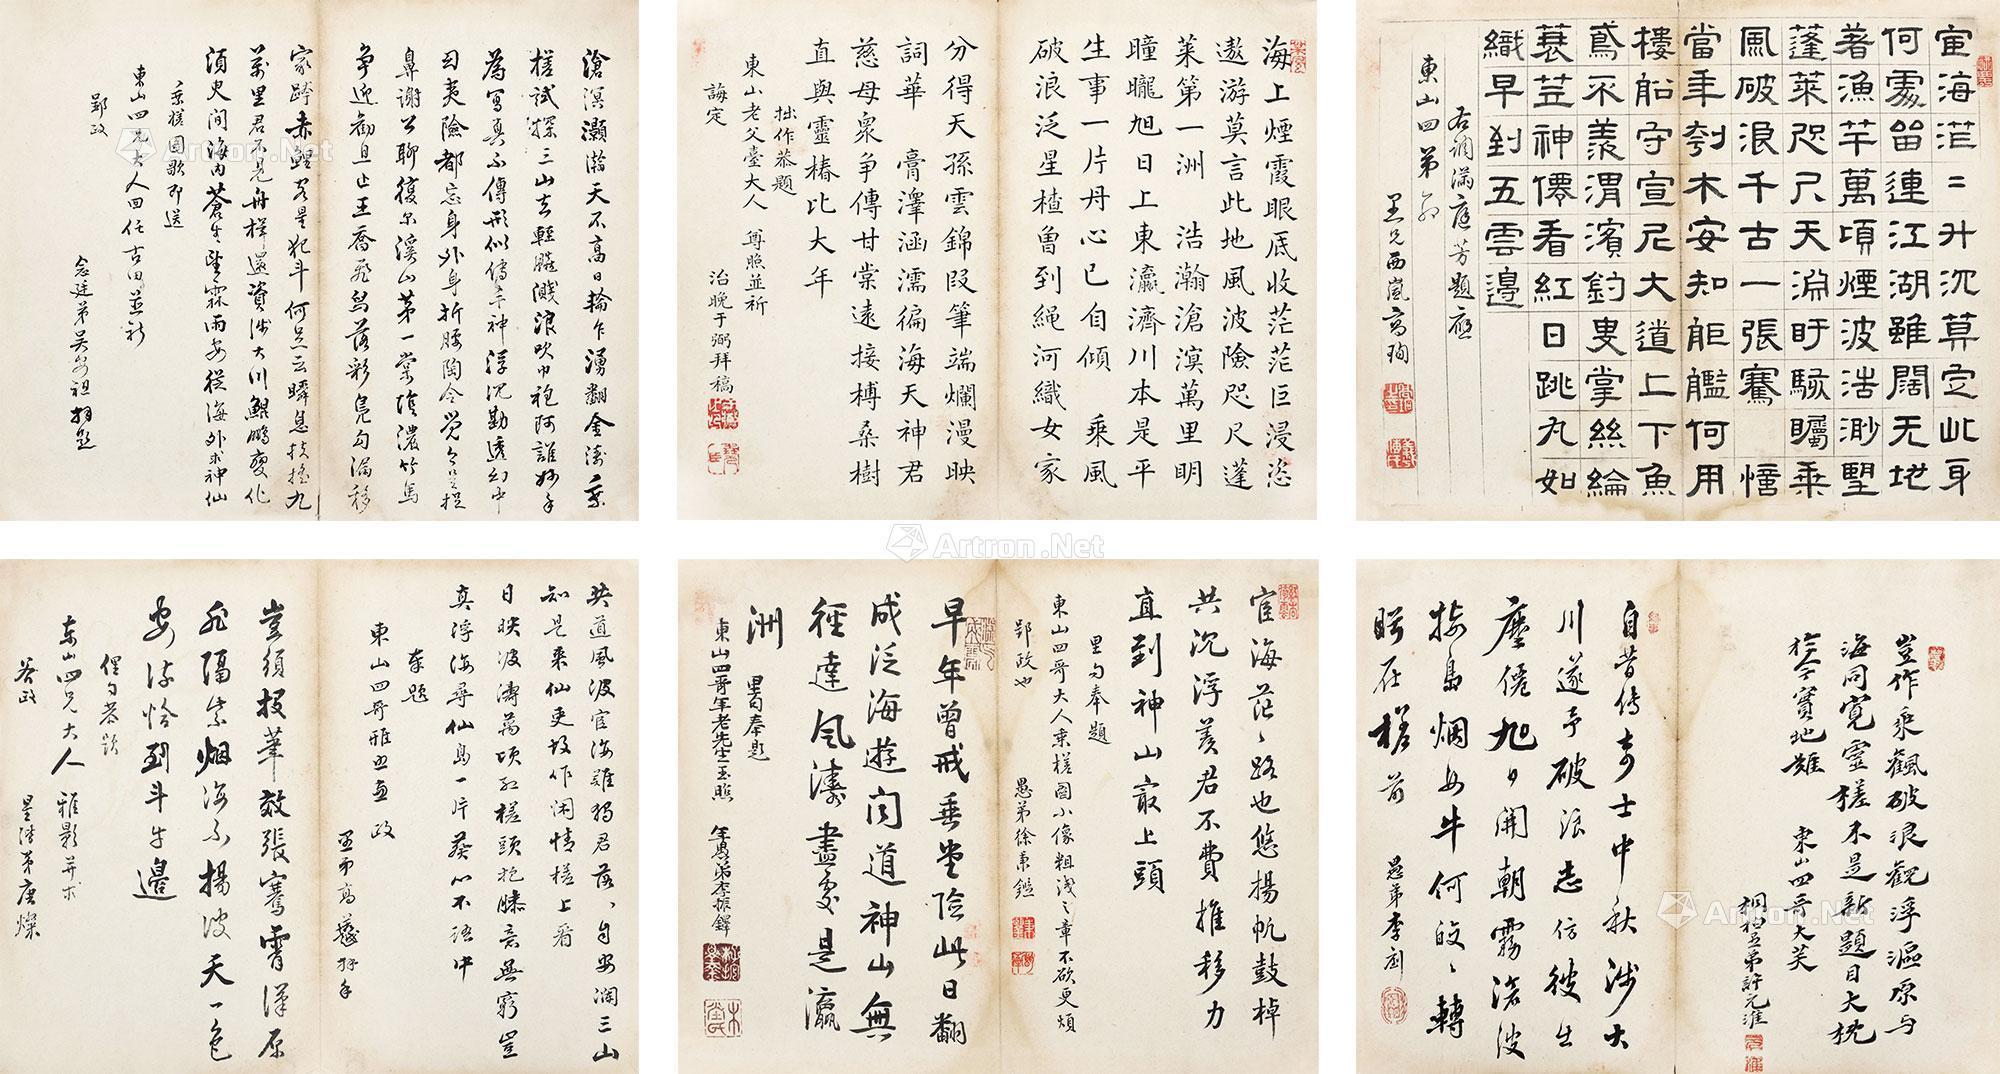 宦海茫二升沉莫定此身
何處留連江湖雖闊无地
著漁竿萬頃煙波浩渺望
蓬萊咫尺天淵盱駭矚乘
風破浪千古一張騫 憶
當年刳木安知艦何用
樓船守宣尼大道上下魚
鳶不羨渭濱釣叟掌絲綸
蓑笠神僊看紅日跳丸如
織早到五雲邊
右調滿庭芳題應
東山四弟命
愚兄西嵐高珣
海上煙霞眼底收茫茫巨浸恣
遨游莫言此地風波險咫尺蓬
萊第一洲 浩瀚滄溟萬里明
曈曨旭日上東瀛濟川本是平
生事一片丹心已自傾 乘風
破浪泛星楂曾到繩河織女家
分得天孫雲錦段筆端爛漫映
詞華 膏澤涵濡徧海天神君
慈母衆争傳甘棠遠接榑桑樹
直與靈椿比大年
拙作恭題
東山老父臺大人 尊照並祈
誨定
治晚于弼拜稿
滄溟灝瀚天不高日輪乍湧翻金濤乘
槎試探三山去輕艖濺浪吹巾袍阿誰妙手
為寫真不傳形似傳其神浮沉勘透幻中
因夷險都忘身外身折腰陶令覺
鼻謝公聊復尔溪山第一棠陰濃竹馬
争迎勸且止王喬飛舄落彩鳧勾漏移
家跨赤鯉莫是犯斗何足云瞬息扶搖九
萬里君不見舟楫還資涉大川鯤鵬變化
須臾間海内蒼生望霖雨安從海外求神仙
乘槎圖歌即送
東山四兄大人回任古田並祈
郢政
念廷弟吳安祖拜題
豈作乘飆破浪觀浮漚原与
海同寬靈槎不是新題目大抵
於今實地難 東山四哥大芙
桐柏五弟許元淮
自昔傳奇士中秋涉大
川遂予破浪志仿彼出
塵僊旭日開朝霧滄波
接島烟女牛何皎々轉
眄在槎前
愚弟李剑
宦海茫々路也悠揚帆鼓棹
共沉浮羨君不費推移力
直到神山最上頭
里句奉題
東山四哥大人乘槎圖小像粗淺之章不欲更煩
郢政也
愚弟徐秉鑑
早年曾戒垂堂險此日翻
成泛海遊閱道神山無
徑達風濤盡處是瀛
洲 里句奉題
東山四哥年老先生玉照 年愚弟李振鐸
共道風波宦海難獨君落々自安瀾三山
知是來仙吏故作闲情槎上看
日映波濤萬頃紅槎頭抱膝意無窮豈
真浮海尋仙島一片葵心不語中
奉題
東山四哥雅照並政
豈須投筆效張騫霄漢原
飛隔紫烟海不揚波天一色
安流恰到斗牛邊
俚句恭題
東山四兄大人雅影并求
落政
星階弟唐燦
Artron.Net